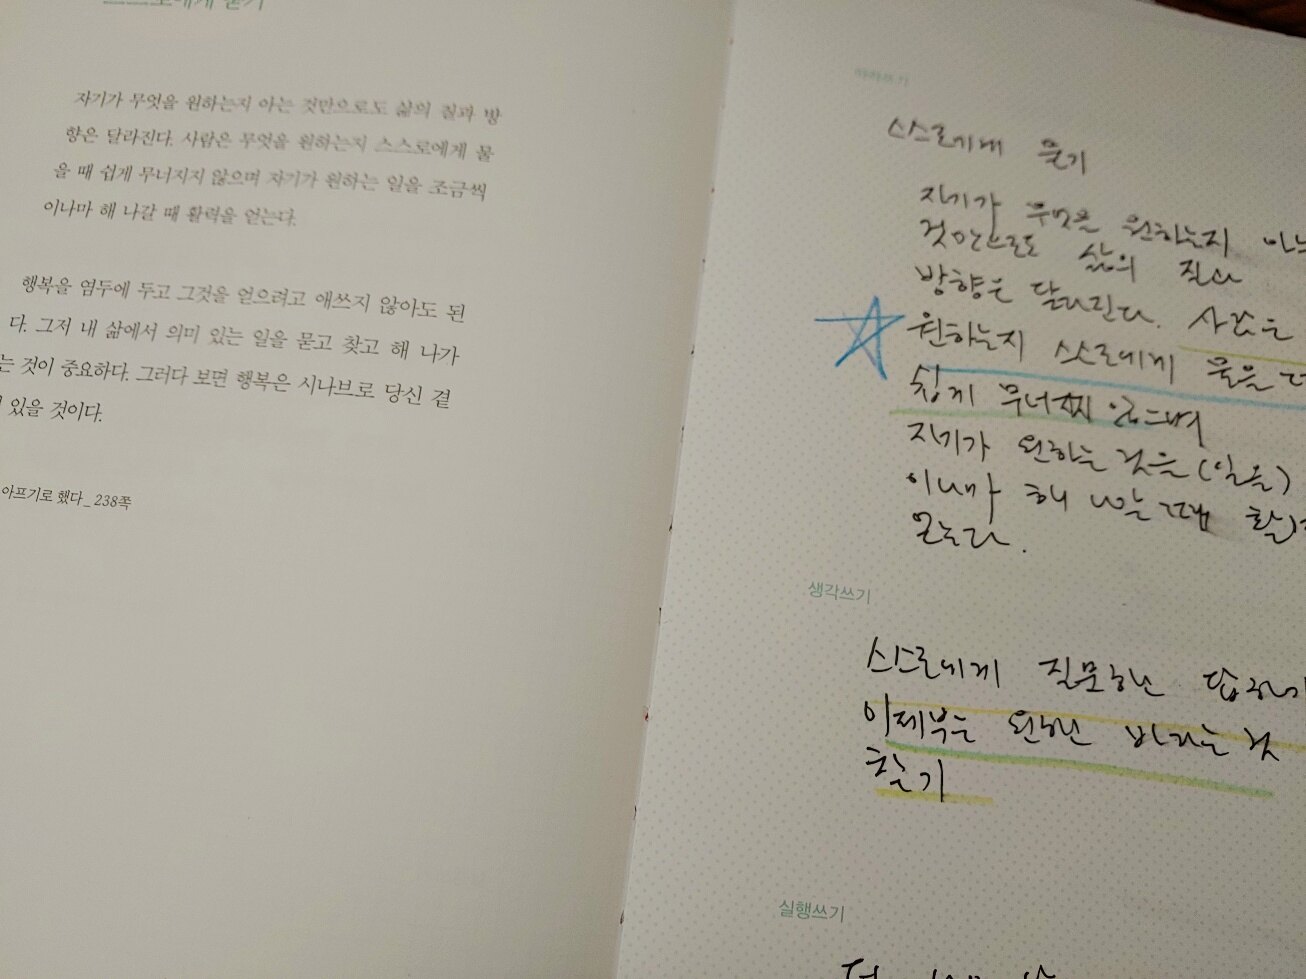 스스로에게 묻기
자기가 무엇을 원하는지 아는 것만으로도 삶의 질과 방
향은 달라진다. 사람은 무엇을 원하는지 스스로에게 물
을 때 쉽게 무너지지 않으며 자기가 원하는 일을 조금씩
이나마 해 나갈 때 활력을 얻는다.
행복을 염두에 두고 그것을 얻으려고 애쓰지 않아도 된
다. 그저 내 삶에서 의미 있는 일을 묻고 찾고 해 나가
는 것이 중요하다. 그러다 보면 행복은 시나브로 당신 곁
에 있을 것이다.
아프기로 했다_ 238쪽
따라쓰기
스스로에게 묻기
자기가 무엇을 원하는지 아는
것만으로도 삶의 질과
방향은 달라진다. 사람은
원하는지 스스로에게 물을 때
쉽게 무너지지 않으며
자기가 원하는 것을 (일을)
이나마 해 나갈 때 활력
얻는다.
생각쓰기
스스로에게 질문하면 답하기
이제부는 원하면 바라는 것
찾기
실행쓰기